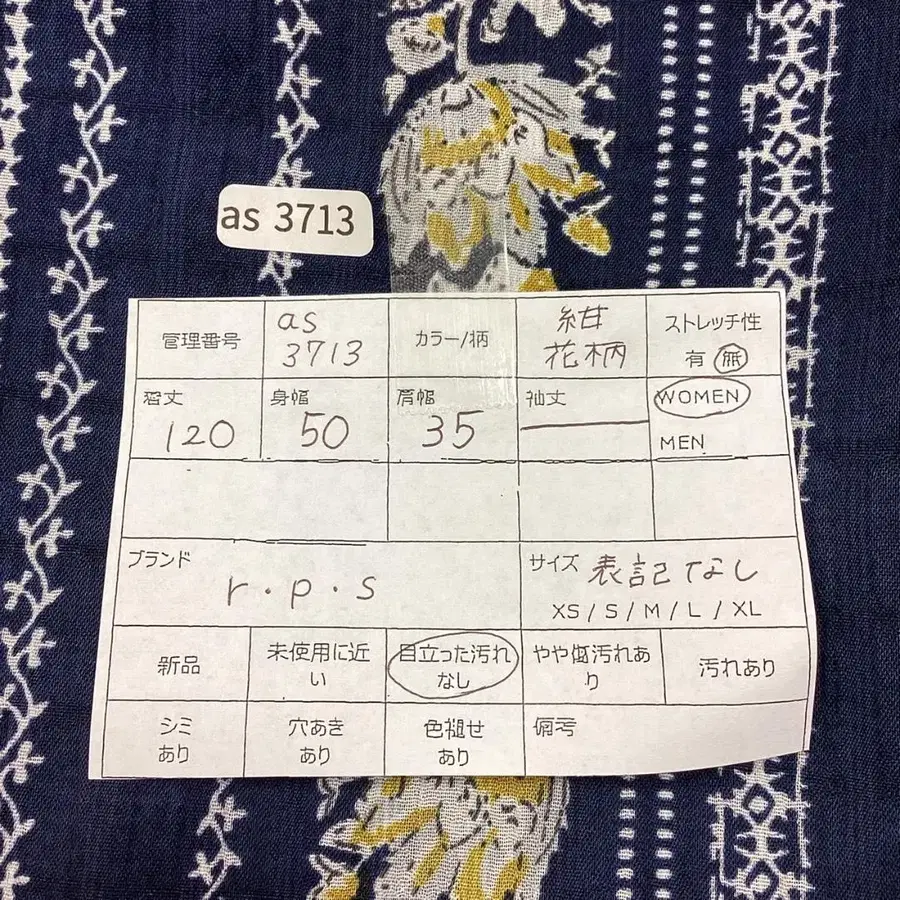 as 3713
管理番号
as
3713
カラー/柄
紺
花柄
ストレッチ性
有 無
着丈
120
身幅
50
肩幅
35
袖丈
WOMEN
MEN
ブランド
r・p・s
サイズ 表記なし
XS / S / M / L / XL
新品
未使用に近
い
目立った汚れ
なし
やや傷汚れあ
り
汚れあり
シミ
あり
穴あき
あり
色褪せ
あり
備考